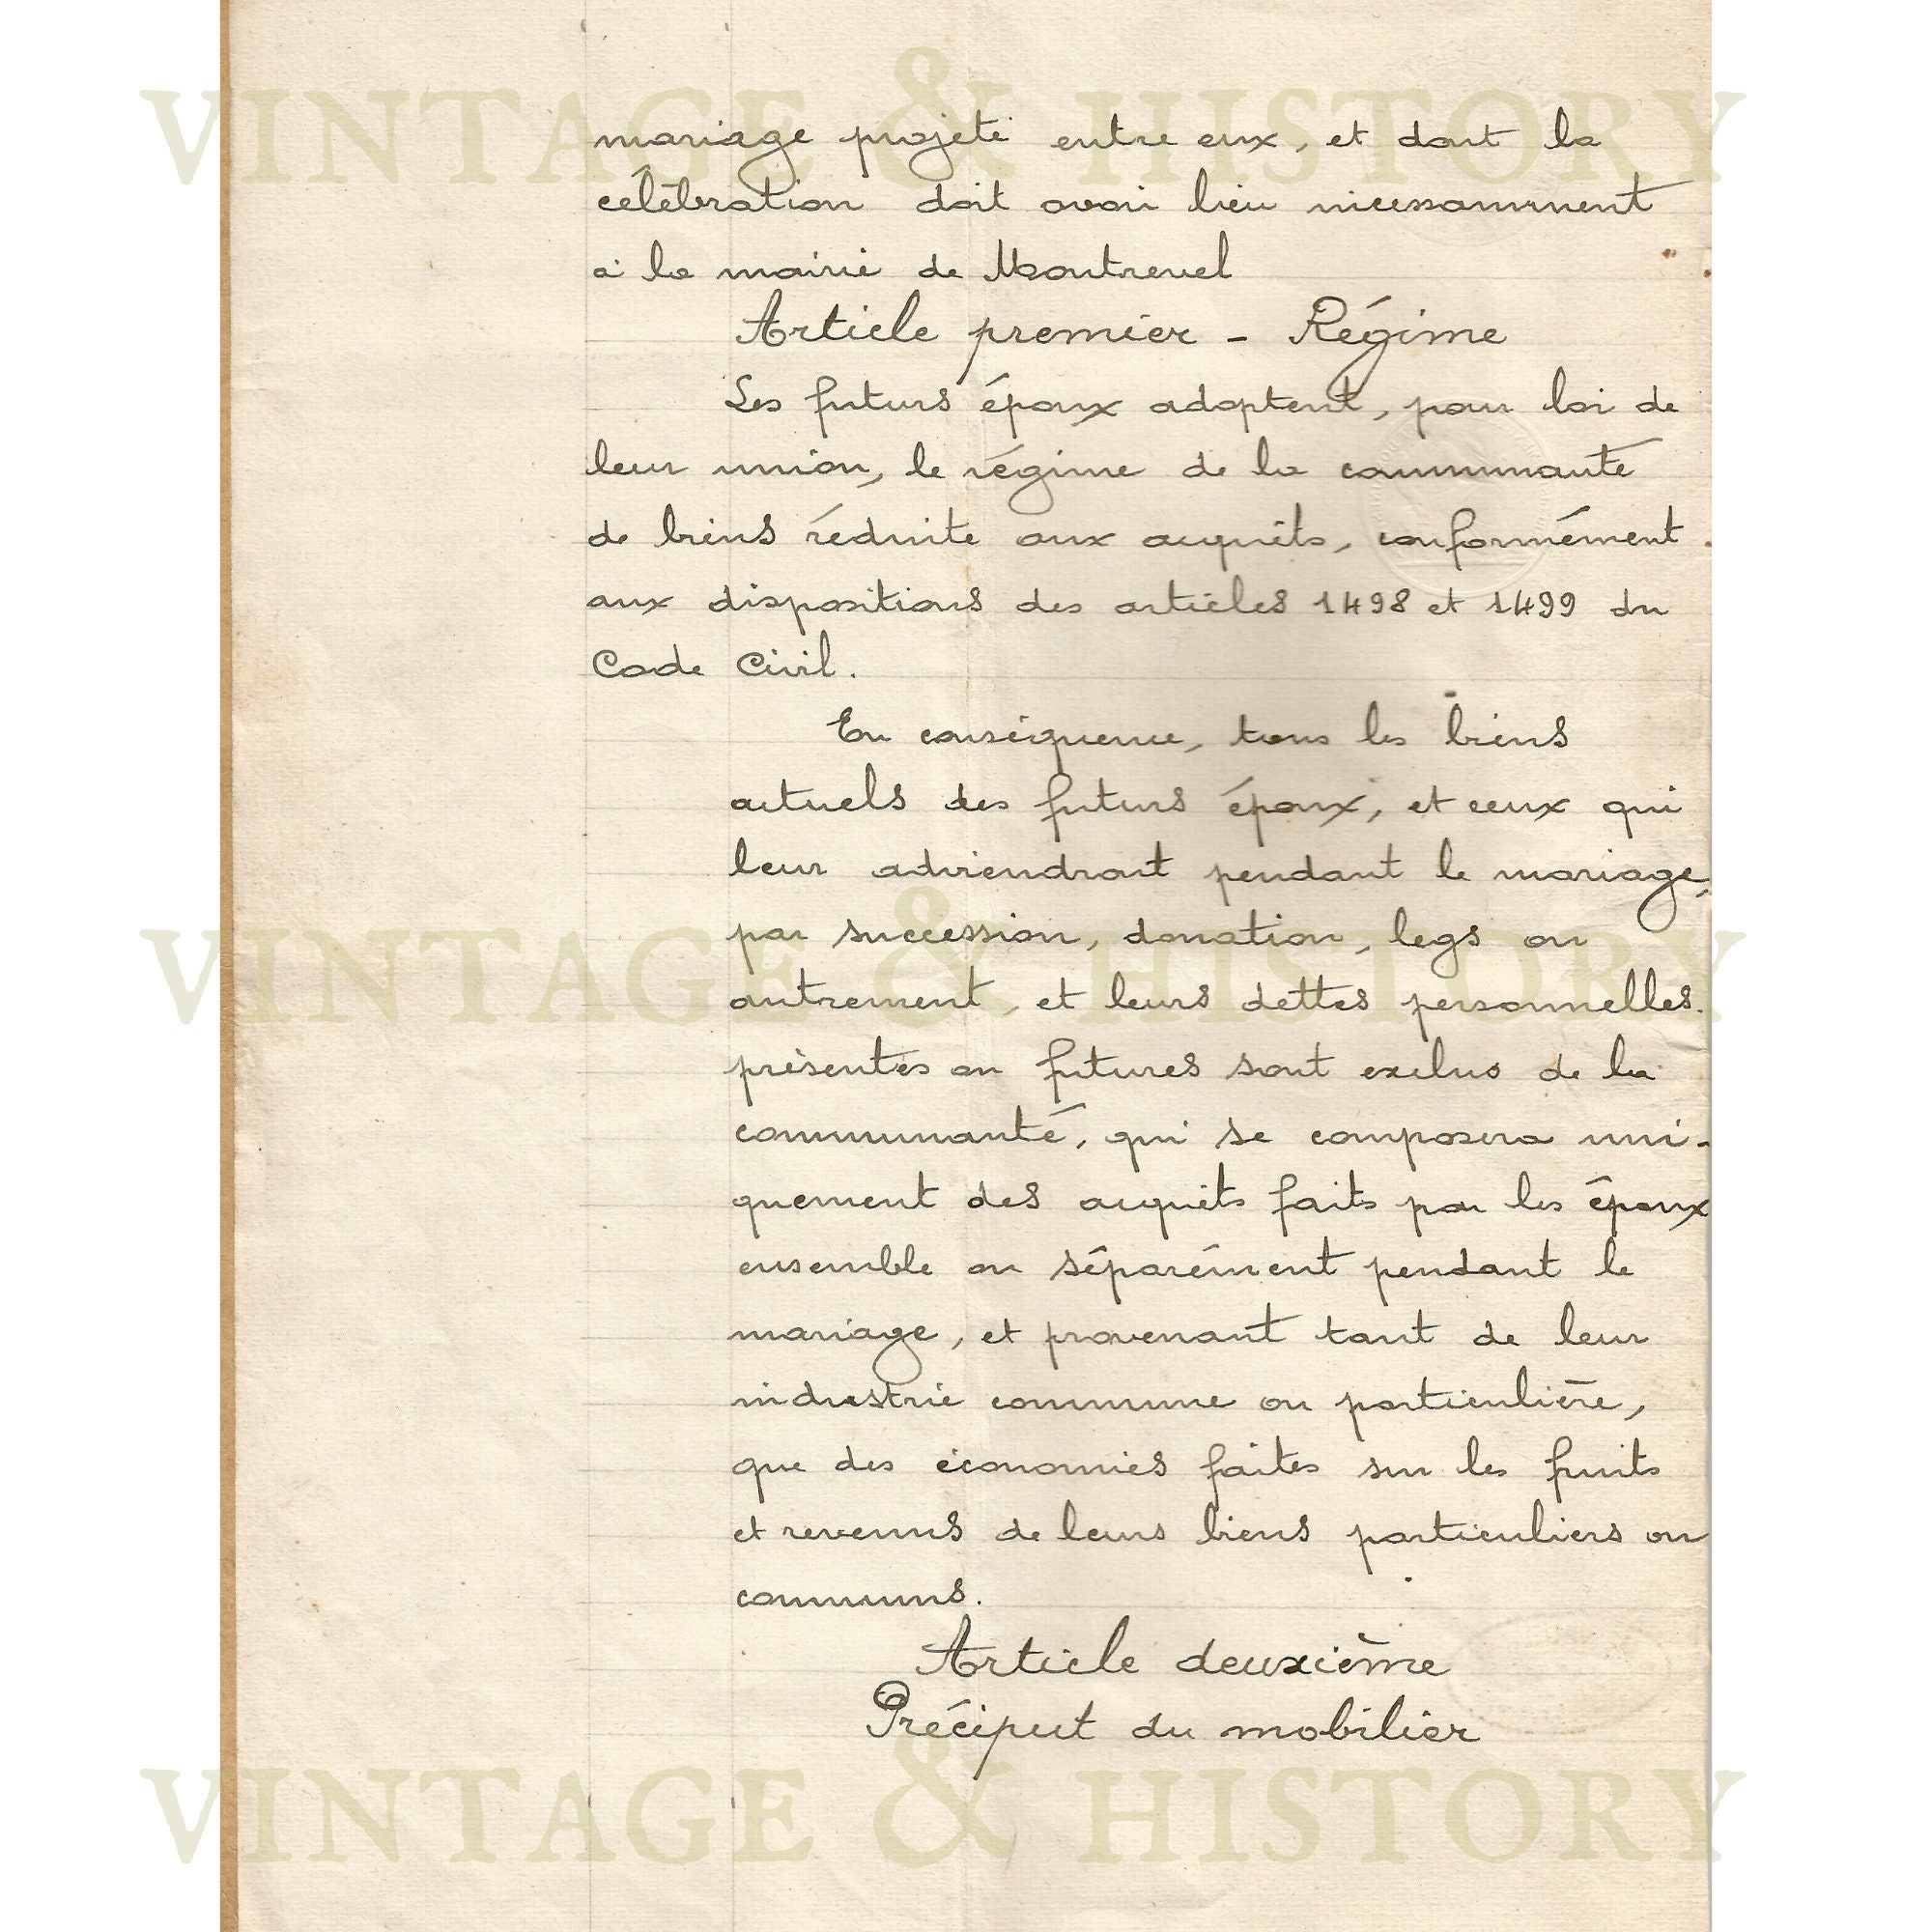 VINTAGE & HISTORY
mariage projeté entre eux, et dont la
célébration doit avoir lieu nécessairement
à la mairie de Montrevel
Article premier - Régime
Les futurs époux adoptent, pour loi de
leur union, le régime de la communauté
de biens réduite aux acquêts, conformément
aux dispositions des articles 1498 et 1499 du
Code Civil.
En conséquence, tous les biens
actuels des futurs époux, et ceux qui
leur adviendront pendant le mariage,
VINTAGE & HISTORY
par succession, donation, legs ou
autrement, et leurs dettes personnelles.
présentes ou futures sont exclus de la
communauté, qui se composera uni-
quement des acquêts faits par les époux
ensemble ou séparément pendant le
mariage, et provenant tant de leur
industrie commune ou particulière,
que des économies faites sur les fruits
et revenus de leurs biens particuliers ou
communs.
Article deuxième
Préciput du mobilier
VINTAGE & HISTORY